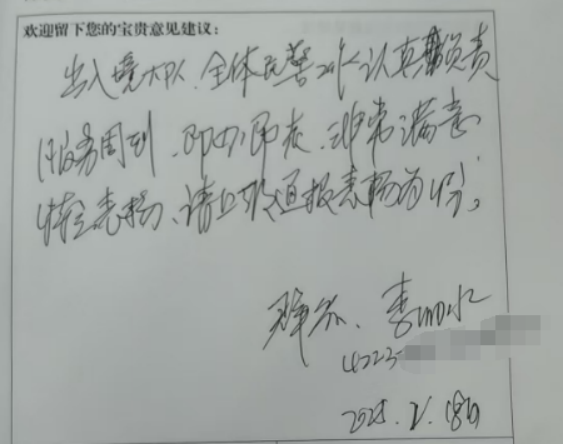 欢迎留下您的宝贵意见建议：
出入境大队、全体民警工作认真负责
服务周到、即办即发、非常满意
特表扬、请上级通报表扬为盼；
李
4223
2025.2.18日